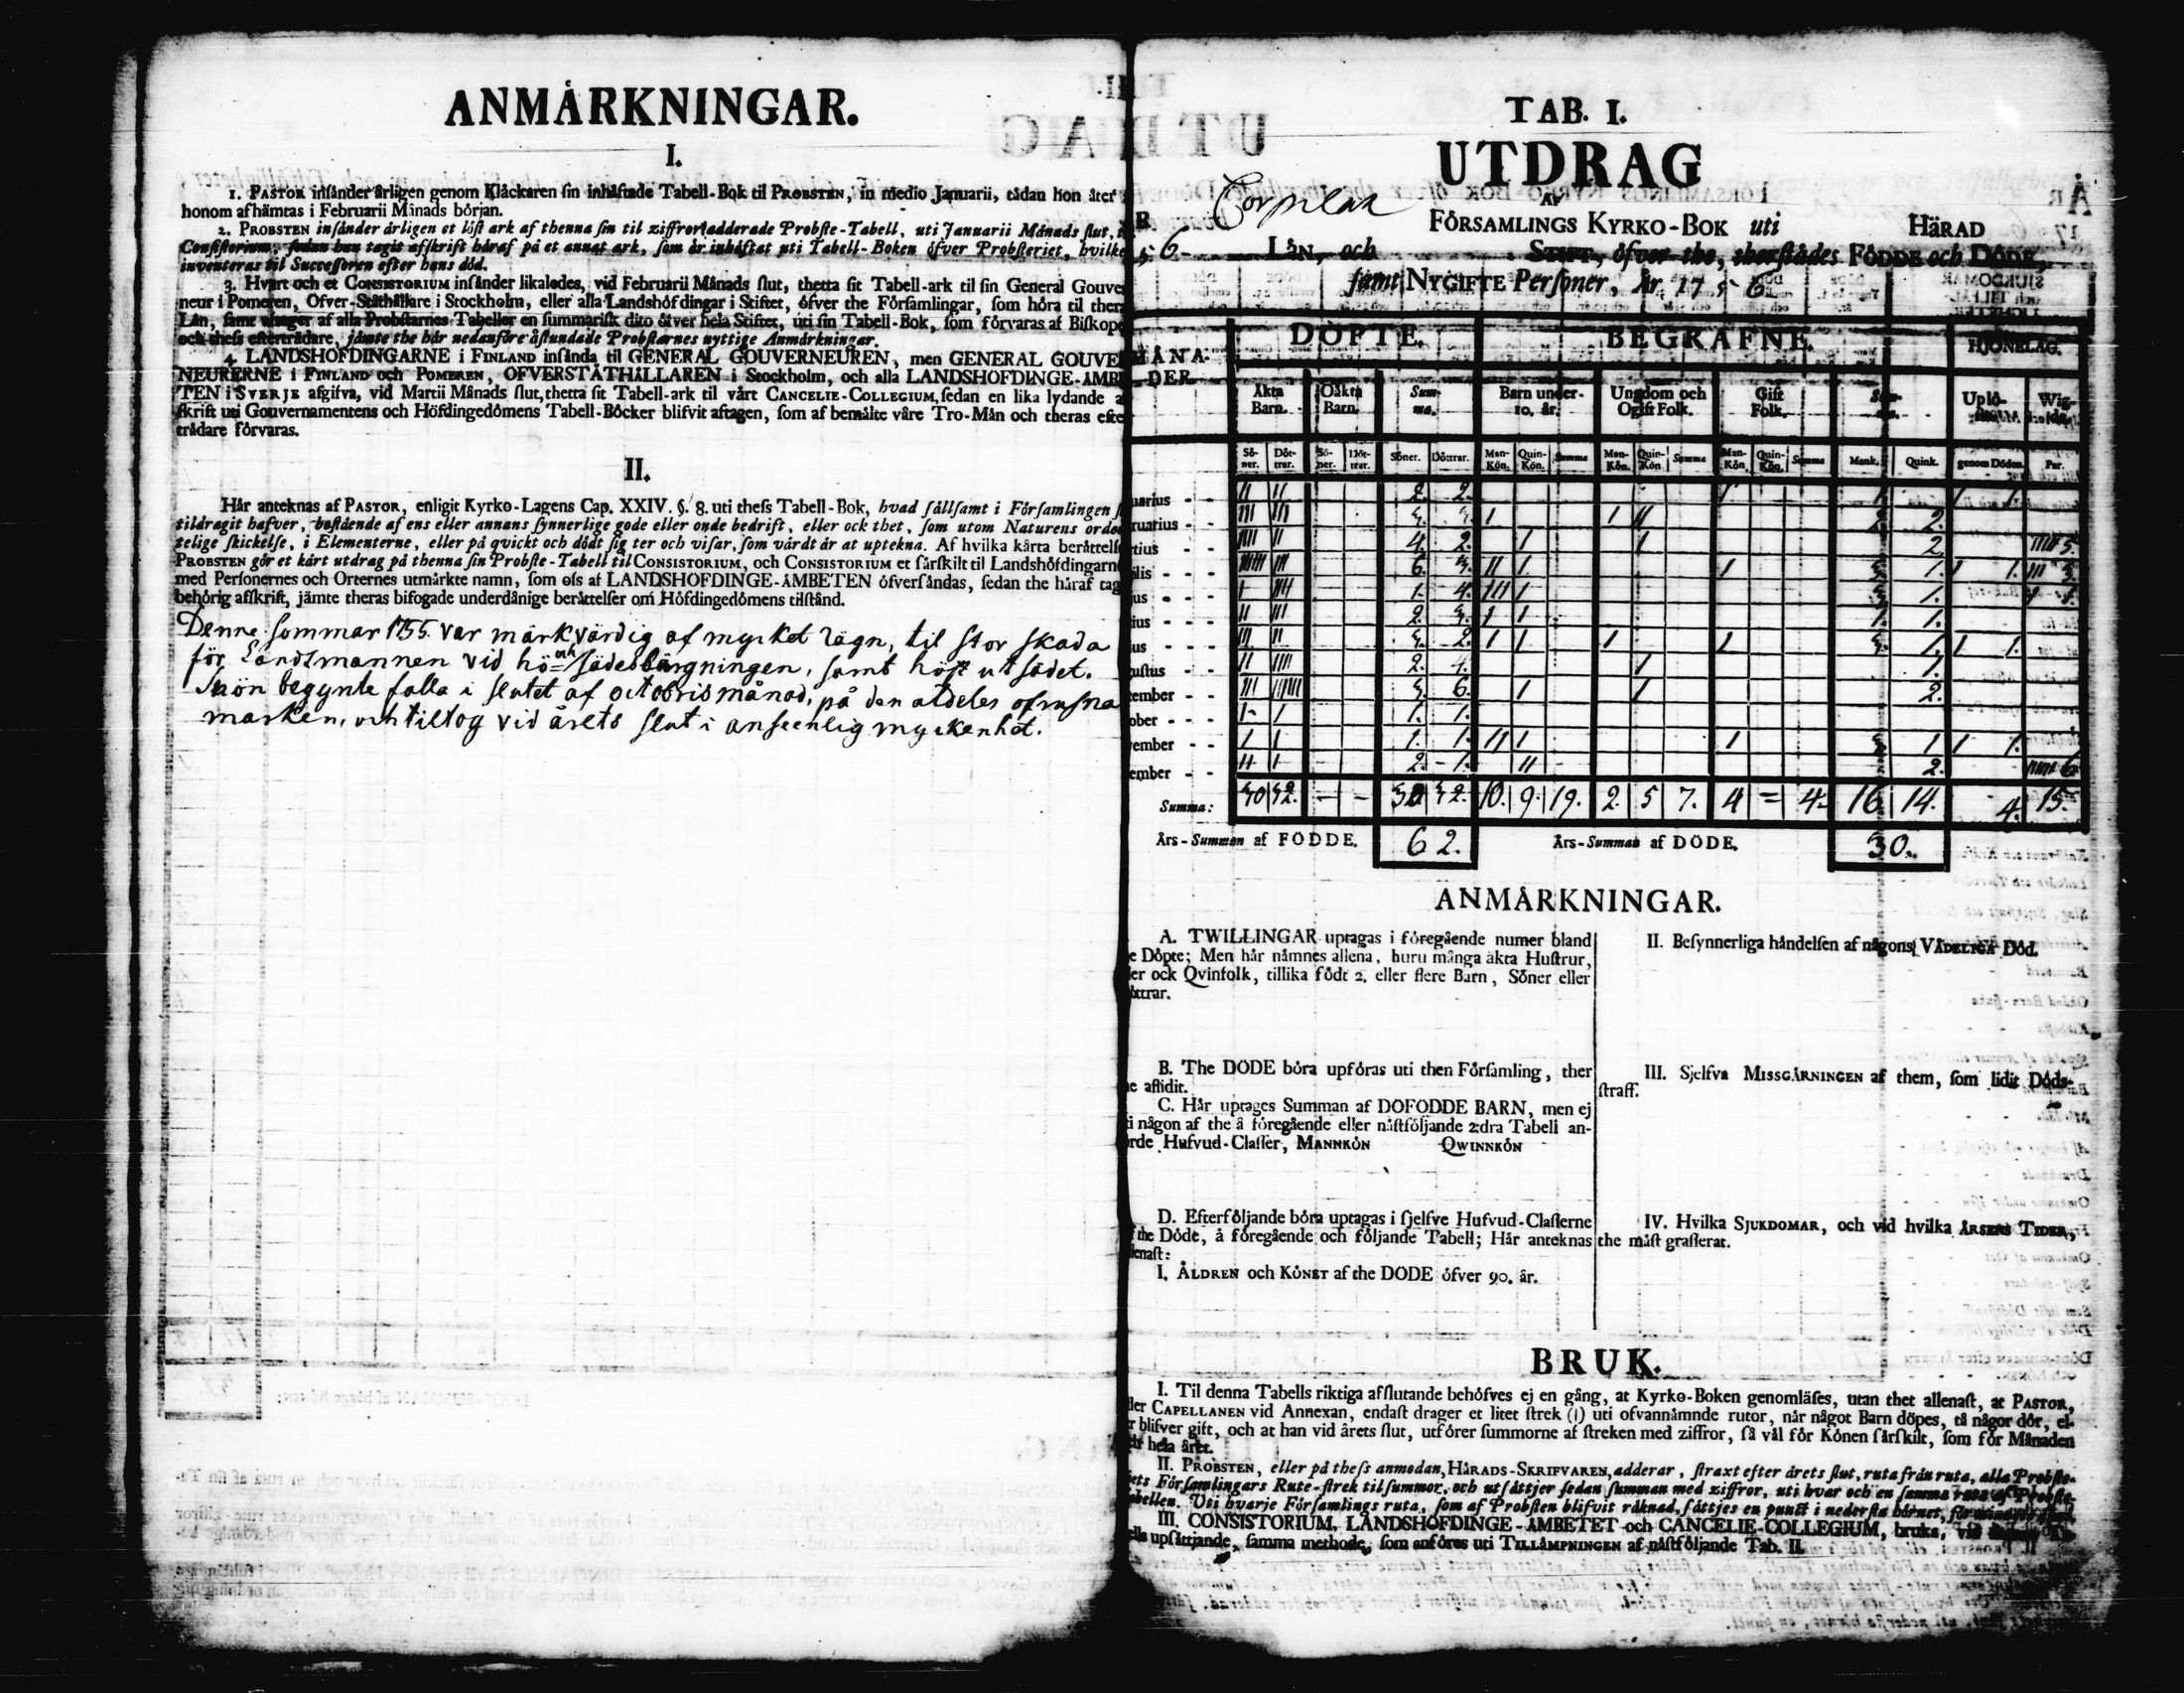 ANMÅRKNINGAR.
I.
1. PASTOR inſånder årligen genom Klåckaren ſin inhåftade Tabell-Bok til PROBSTEN, in medio Januarii, tådan hon åter
honom afhåmtas i Februarii Månads bórjan.
2. PROBSTEN inſånder årligen et lóſt ark af thenna ſin til ziffror adderade Probſte-Tabell, uti Januarii Månads ſlut,
Conſiſtorium; ſedan han tagit afſkrift håraf på et annat ark, ſom år inhåftat uti Tabell-Boken ófver Probſteriet, hvilke
inventeras til Succeſſoren efter hans dód.
3. Hvart och et CONSISTORIUM inſånder likaledes, vid Februarii Månads ſlut, thetta ſit Tabell-ark til ſin General Gouver
neur i Pomeren, Ofver-Ståthållare i Stockholm, eller alla Landshófdingar i Stiftet, ófver the Fórſamlingar, ſom hóra til thera
Lån, ſamt uttager af alla Probſtarnes Tabeller en ſummariſk dito ófver hela Stiftet, uti ſin Tabell-Bok, ſom fórvaras af Biſkope
och theſs eftertrådare, jåmte the hår nedanfóre åſtundade Probſtarnes nyttige Anmårkningar.
4. LANDSHOFDINGARNE i FINLAND inſånda til GENERAL GOUVERNEUREN, men GENERAL GOUVE
NEURERNE i FINLAND och POMEREN, OFVERSTÅTHÅLLAREN i Stockholm, och alla LANDSHOFDINGE-ÅMB
TEN i SVERJE afgifva, vid Martii Månads ſlut, thetta ſit Tabell-ark til vårt CANCELIE-COLLEGIUM, ſedan en lika lydande a
ſkrift uti Gouvernamentens och Hófdingedómens Tabell-Bócker blifvit aftagen, ſom af bemålte våre Tro-Mån och theras efte
trådare fórvaras.
II.
Hår anteknas af PASTOR, enligit Kyrko-Lagens Cap. XXIV. §. 8. uti theſs Tabell-Bok, hvad ſållſamt i Fórſamlingen
tildragit hafver, beſtående af ens eller annans ſynnerlige gode eller onde bedrift, eller ock thet, ſom utom Naturens orde
telige ſkickelſe, i Elementerne, eller på qvickt och dódt ſig ter och viſar, ſom vårdt år at uptekna. Af hvilka kårta beråttelſe
PROBSTEN gór et kårt utdrag på thenna ſin Probſte-Tabell til CONSISTORIUM, och CONSISTORIUM et ſårſkilt til Landshófdingarn
med Perſonernes och Orternes utmårkte namn, ſom oſs af LANDSHOFDINGE-ÅMBETEN ófverſåndas, ſedan the håraf tag
behórig afſkrift, jåmte theras bifogade underdånige beråttelſer om Hófdingedómens tilſtånd.
Denne sommar 1755 var märkvärdig af mycket rägn, til stor skada
för Landtmannen vid hö- och sädesbärgningen, samt höst utsädet.
Snön begynte falla i slutet af octobris månad, på den aldeles ofrusna
marken, och tiltog vid årets slut i anseenlig myckenhet.
TAB. I.
UTDRAG
AF
FÓRSAMLINGS KYRKO-BOK uti HÄRAD
LÅN, och STIFT, ófver the, therſtådes FÓDDE och DÓDE,
ſamt NYGIFTE Perſoner, År 1756
DÓPTE. BEGRAFNE. HJONELAG.
MÅNA-
DER
Åkta Barn. Oåkta Barn. Summa. Barn under 10. år. Ungdom och Ogift Folk. Gift Folk. Summa. Upló- Wig-
Só-ner. Dót-trar. Só-ner. Dót-trar. Sóner. Dóttrar. Man-Kón. Quin-Kón. Summa Man-Kón. Quin-Kón Summa Man-Kón. Quin-Kón. Summa Mank. Quink. genom Dóden. Par.
uarius II II 2. 2. I 1. I 1.
ruarius III III 3. 3. I I II 2. 2.
rtius IIII II 4. 2. I I 2 IIIII 5.
ilis IIIIII III 6. 3. II I I 3. 1. I 1. III 3.
jus I IIII 1. 4. III I 3. 1. I 1.
ius II III 2. 3. I I 1. 1.
us III II 3. 2. I I I I 3. 1. I 1.
uſtus II IIII 2. 4. I 1.
tember III IIIIII 3. 6. I I 2.
ober I I 1. 1.
vember I I 1. 1. II I I 3. 1 I 1.
ember II I 2. 1. II 2. IIIIII 6
Summa: 30 32. - - 30 32. 10. 9. 19. 2. 5 7. 4 = 4. 16. 14. 4. 15.
Års-Summan af FÓDDE. 62. Års-Summan af DÓDE. 30.
ANMÅRKNINGAR.
A. TWILLINGAR uptagas i fóregående numer bland
e Dópte; Men hår nåmnes allena, huru många åkta Huſtrur,
ler ock Qvinfolk, tillika fódt 2. eller flere Barn, Sóner eller
óttrar.
B. The DÓDE bóra upfóras uti then Fórſamling, ther
e aflidit.
C. Hår uptages Summan af DÓFÓDDE BARN, men ej
i någon af the å fóregående eller nåſtfóljande 2:dra Tabell an-
órde Hufvud-Claſſer, MANNKÓN QWINNKÓN
D. Efterfóljande bóra uptagas i ſjelfve Hufvud-Claſſerne
f the Dóde, å fóregående och fóljande Tabell; Hår anteknas
lenaſt:
I. ÅLDREN och KÓNET af the DÓDE ófver 90. år.
II. Beſynnerliga håndelſen af någons VÅDELIGA Dód.
III. Sjelfva MISSGÅRNINGEN af them, ſom lidit Dóds-
ſtraff.
IV. Hvilka SJUKDOMAR, och vid hvilka ÅRSENS TIDER,
the måſt graſſerat.
BRUK.
I. Til denna Tabells riktiga afſlutande behófves ej en gång, at Kyrko-Boken genomläſes, utan thet allenaſt, at PASTOR,
ller CAPELLANEN vid Annexan, endaſt drager et litet ſtrek (I) uti ofvannåmnde rutor, når något Barn dópes, tå någor dór, el-
r blifver gift, och at han vid årets ſlut, utfórer ſummorne af ſtreken med ziffror, ſå vål fór Kónen ſårſkilt, ſom fór Månaden
hela året.
II. PROBSTEN, eller på theſs anmodan, HÅRADS-SKRIFVAREN, adderar, ſtraxt efter årets ſlut, ruta från ruta, alla Probſte-
ets Fórſamlingars Rute-ſtrek til ſummor, och utſåttjer ſedan ſumman med ziffror, uti hvar och en ſamma ruta af Probſte-
abellen. Uti hvarje Fórſamlings ruta, ſom af Probſten blifvit råknad, ſåttjes en punct i nederſta hórnet,
III. CONSISTORIUM, LANDSHOFDINGE-ÅMBETET och CANCELIE-COLLEGIUM, bruka, vid
upſåttjande, ſamma methode, ſom anfóres uti TILLÅMPNINGEN af nåſtfóljande Tab. II.